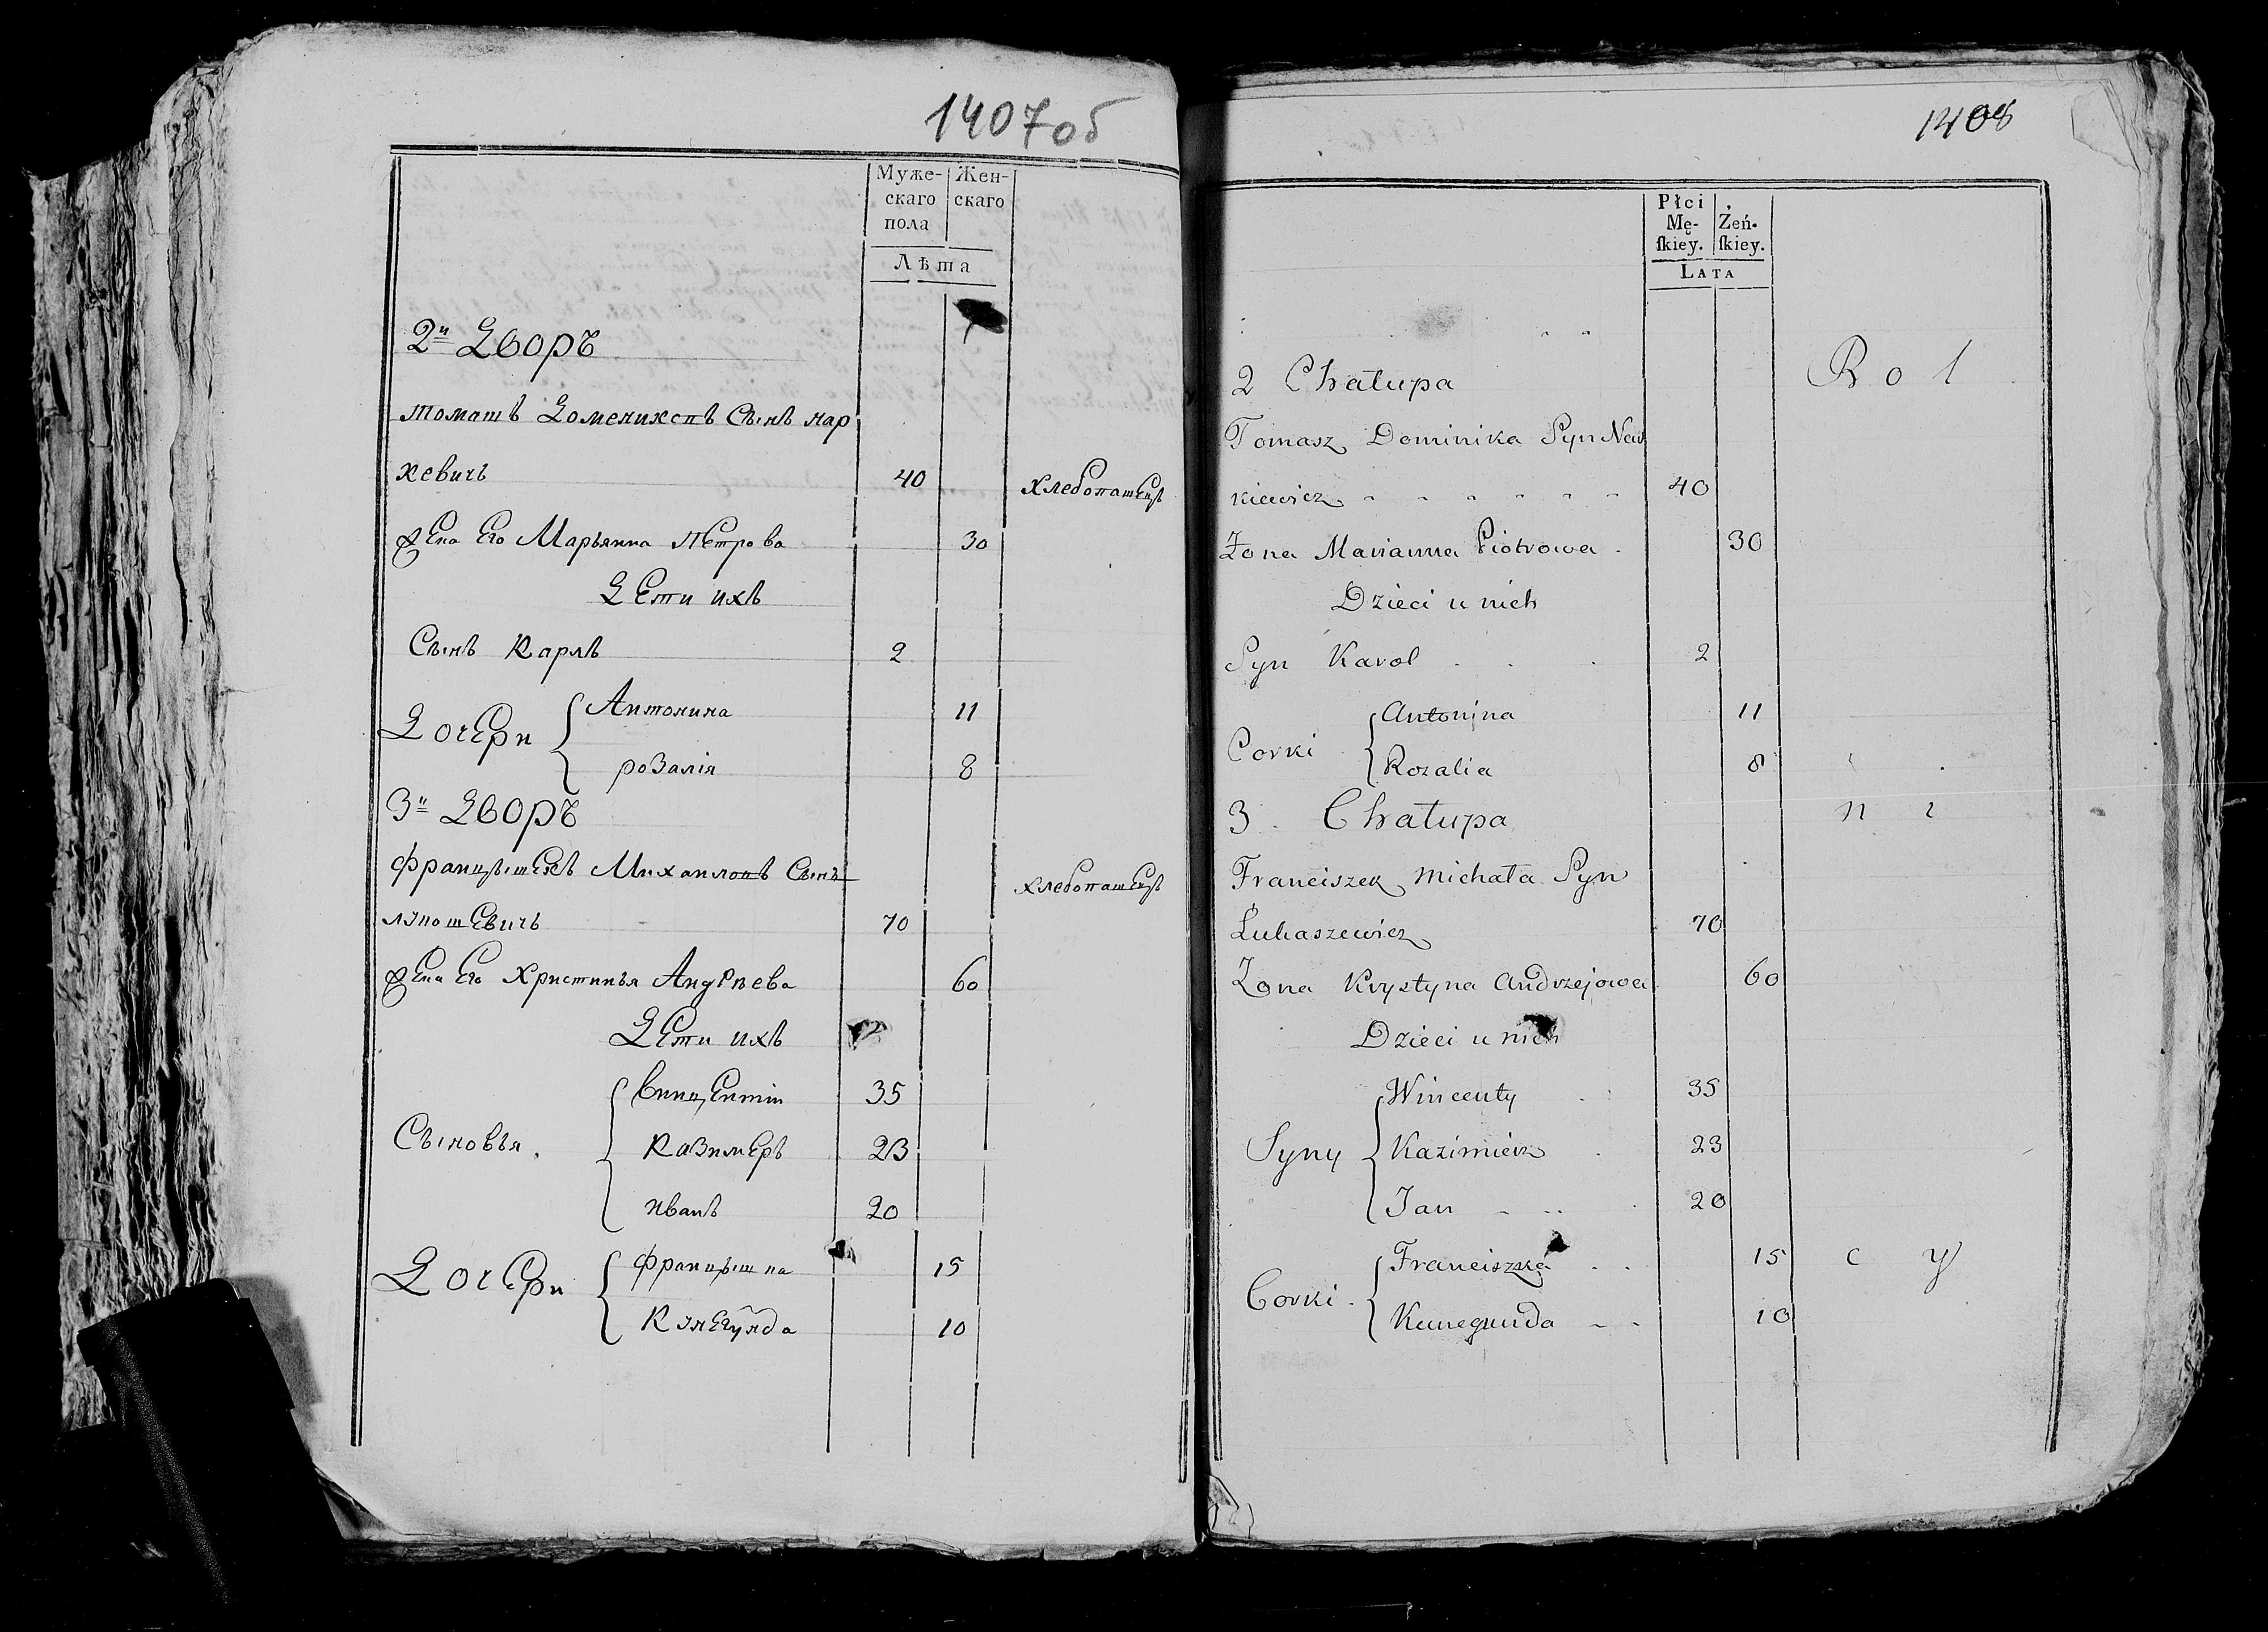 1407об
Муже-
скаго
пола
Жен-
скаго
Лѣта
2й Дворъ
томашъ Доменикопъ Сынъ нар
кевичъ 40 хлебопашецъ
жена Его Марьянна Петрова 30
Дети ихъ
Сынъ Карлъ 2
Дочери { Антонина 11
розалія 8
3й Дворъ
францышекъ Михаилопъ Сынъ хлебопашецъ
70
жена Его Христинья Андреева 60
Дети ихъ
Сыновья { Винцентiи 35
Казимеръ 23
иванъ 20
Дочери { францышка 15
Кунегунда 10
1408
Płci
Mę-
ſkiey.
Żeń-
ſkiey.
LATA
2 Chałupa R o l
Tomasz Dominika Syn Nar
kiewicz 40
Żona Marianna Piotrowa 30
Dzieci u nich
Syn Karol 2
Corki { Antonina 11
Rozalia 8
3. Chałupa n i
Franciszek Michała Syn
Łukaszewicz 70
Żona Krystyna Andrzejowa 60
Dzieci u nich
Syny { Wincenty 35
Kazimierz 23
Jan 20
Corki { Franciszka 15 c y
Kunegunda 10